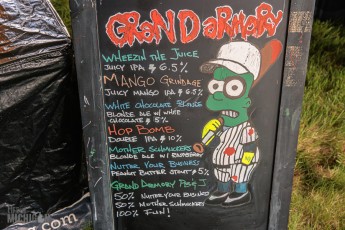 GRAND ARMORY
WHEEZIN THE JUICE
JUICY IPA $ 6.5%
MANGO GRINDAGE
JUICY MANGO IPA $ 6.5%
WHITE CHOCOLATE BLONDE
BLONDE ALE W/ WHITE
CHOCOLATE $ 5%
HOP BOMB
DOUBLE IPA $ 10%
MOTHER SCHMUCKERS
BLONDE ALE W/ RASPBERRY
NUTTER YOUR BUSINESS
PEANUT BUTTER STOUT $ 5%
GRAND ARMORY PB & J
50% NUTTER YOUR BUSINESS
50% MOTHER SCHMUCKERS
100% FUN!
MICHIGAN
.com